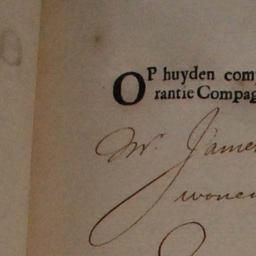 OP huyden comp
rantie Compag
Mr. James
wonen